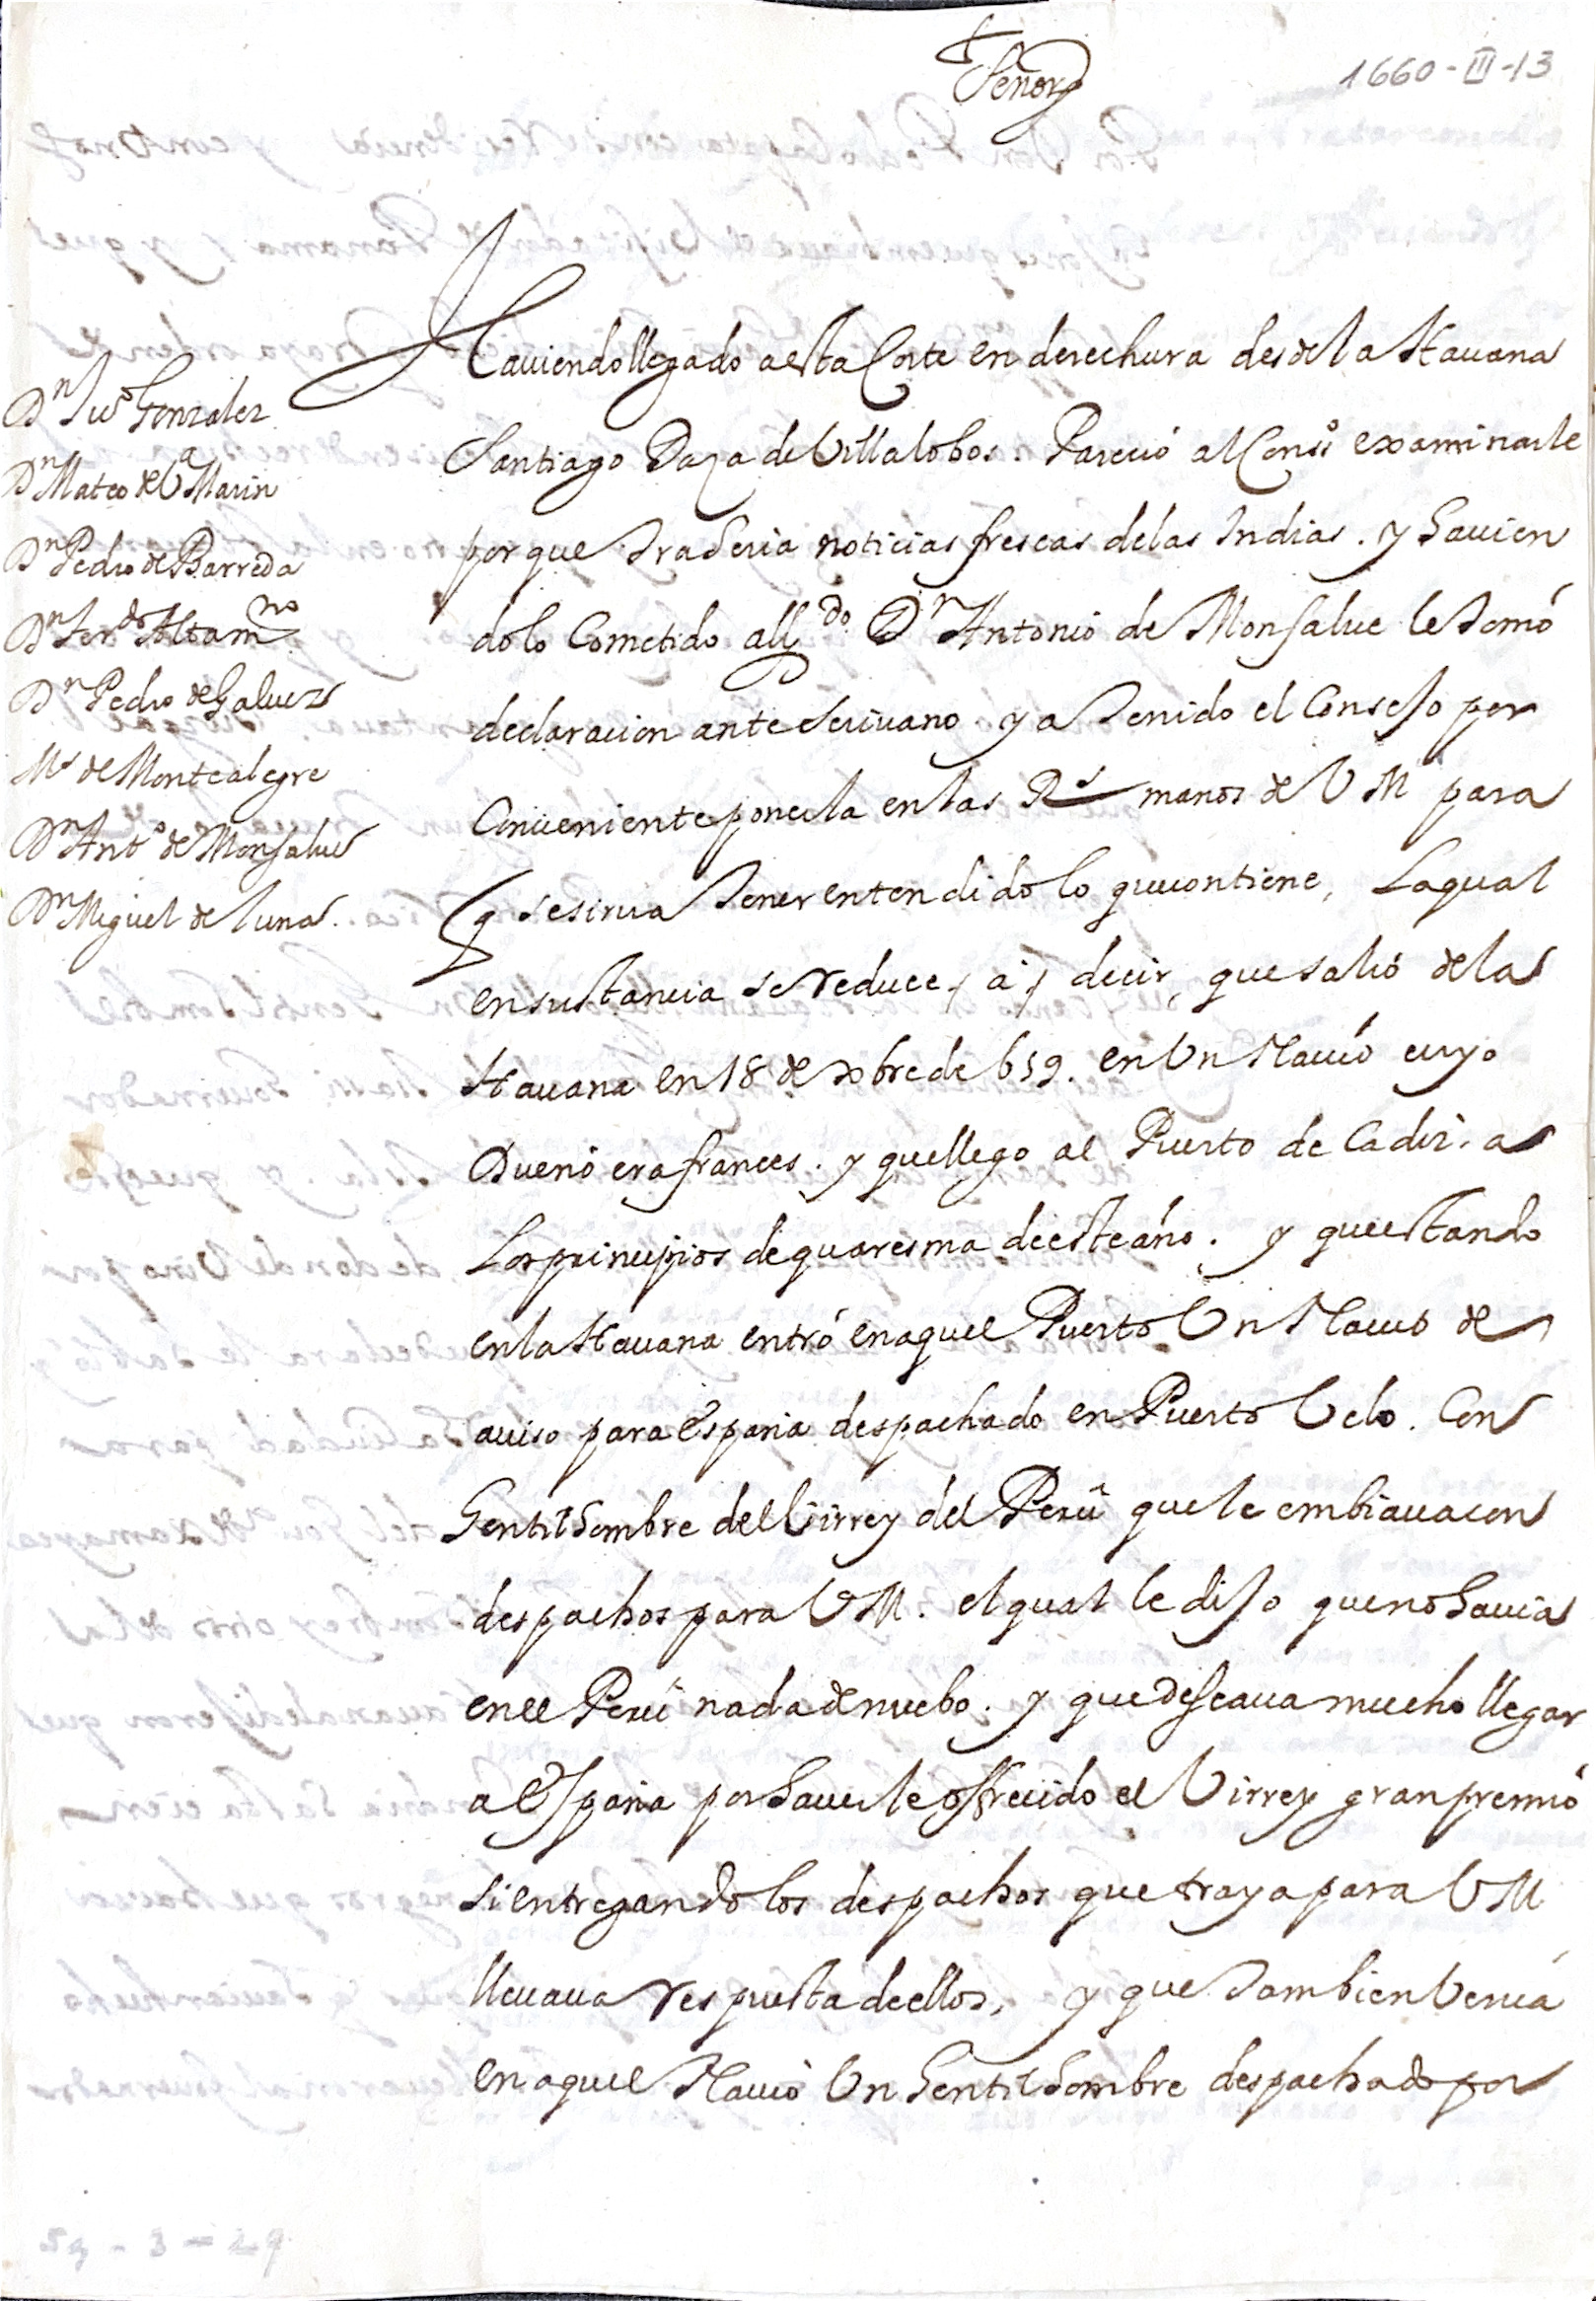 1660-III-13
Señor
Dn Juo Gonzalez
Dn Mateo de Va Marin
Dn Pedro de Barreda
Dn Ferdo Altamno
Dn Pedro de Galuez
Ms de Montealegre
Dn Anto de Monsalue
Dn Miguel de luna.
Hauiendo llegado a esta Corte en derechura desde la Hauana
Santiago Daza de Villalobos. Pareció al Conso examinarle
porque traheria noticias frescas de las Indias. y hauien
dolo Cometido al lldo Dn Antonio de Monsalue le tomó
declaracion ante scriuano. y a tenido el Consejo por
Conueniente ponerla en las Rs manos de V M para
q se sirua tener entendido lo que contiene, La qual
en sustancia se reduce, a, decir, que salió de la
Hauana en 18 de xbre de 659. en Vn Nauio cuyo
Dueño era frances. y que llego al Puerto de Cadiz. a
Los principios de quaresma de este año. y que estando
en la Hauana entró en aquel Puerto Vn Nauio de
auiso para España despachado en Puerto Velo. Con
Gentilhombre del Virrey del Perú que le embiaua con
despachos para V M. el qual le dijo que no hauia
en el Perú nada de nuebo. y que deseaua mucho llegar
a España por hauerle offrecido el Virrey gran premio
si entregando los despachos que traya para V M
lleuaua respuesta de ellos, y que tambien Venia
en aquel Nauio Vn Gentilhombre despachado por